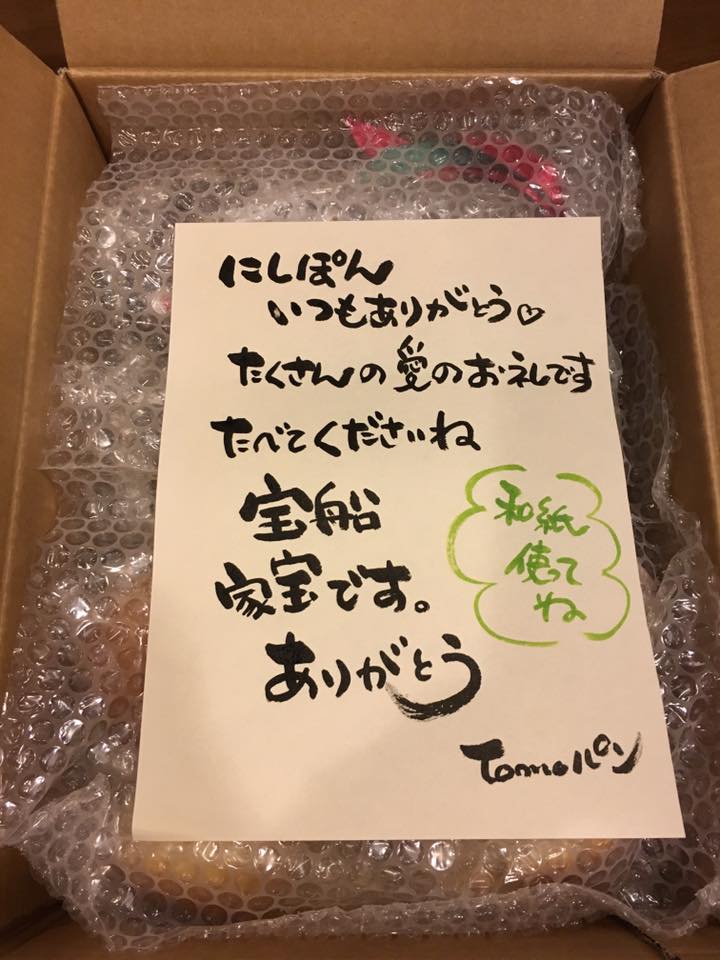 にしぽん
いつもありがとう♡
たくさんの愛のお礼です
たべてくださいね
宝船
家宝です。
ありがとう
和紙
使って
ね
Tomoパン